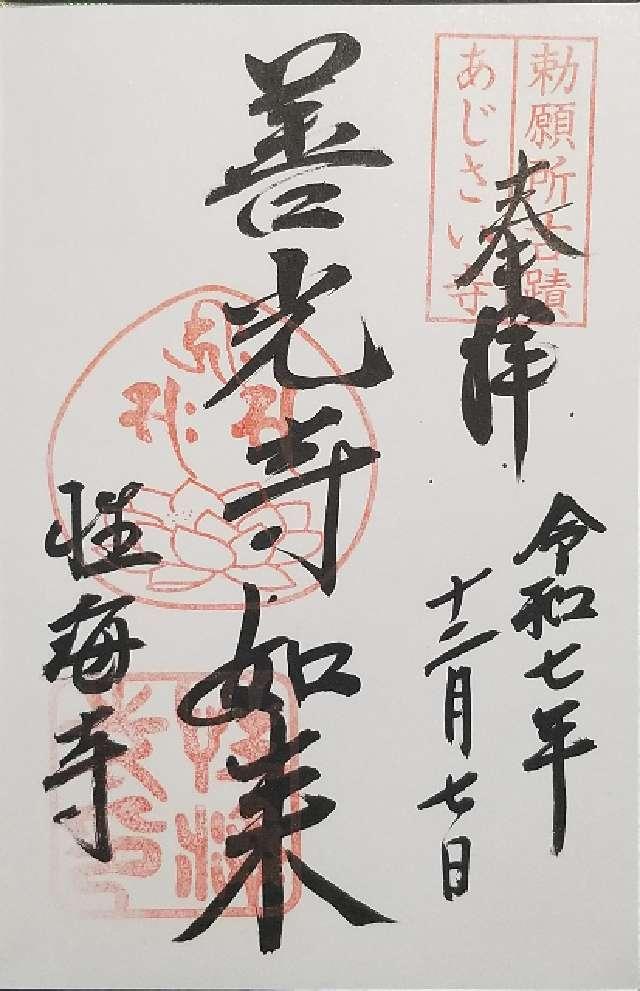 勅願所古蹟
あじさい寺
奉拝
令和七年
十二月七日
善光寺如来
性海寺